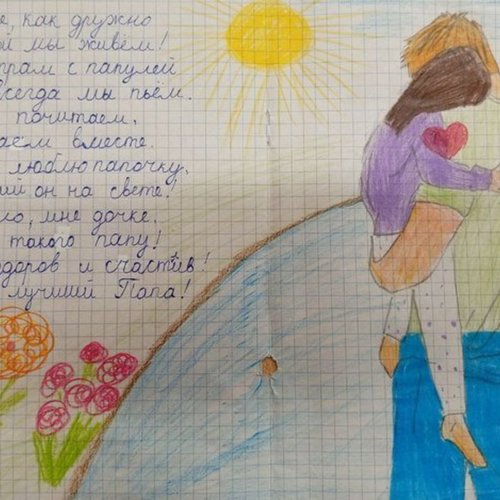 е, как дружно
ой мы живём!
трам с папулей
всегда мы пьём.
почитаем,
аем вместе.
люблю папочку,
ий он на свете!
ло, мне дочке,
такого папу!
доров и счастлив!
лучший Папа!